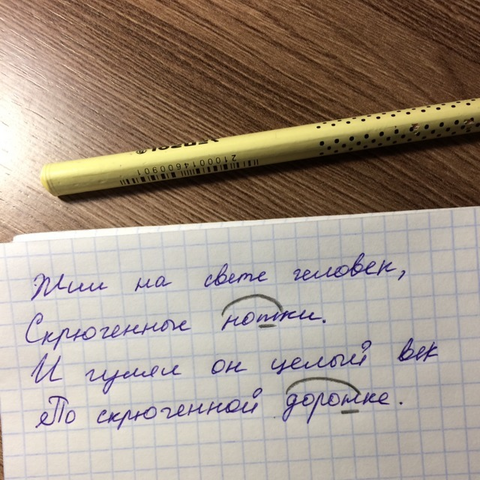 2100014600901
Жил на свете человек,
Скрюченные ножки.
И гулял он целый век
По скрюченной дорожке.